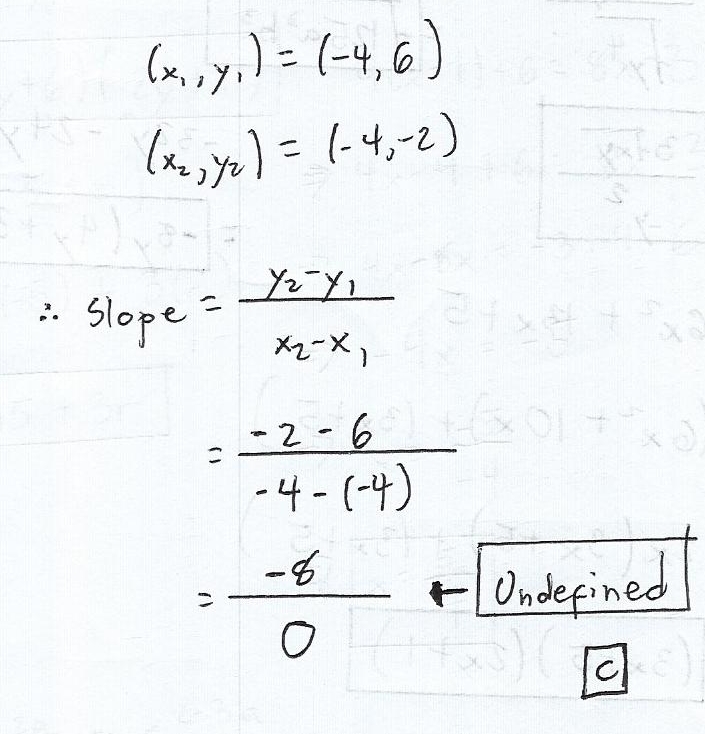 (x₁, y₁) = (-4, 6)
(x₂, y₂) = (-4, -2)
∴ Slope = (y₂-y₁)/(x₂-x₁)
= (-2 - 6)/(-4 - (-4))
= -8/0 ← Undefined
C